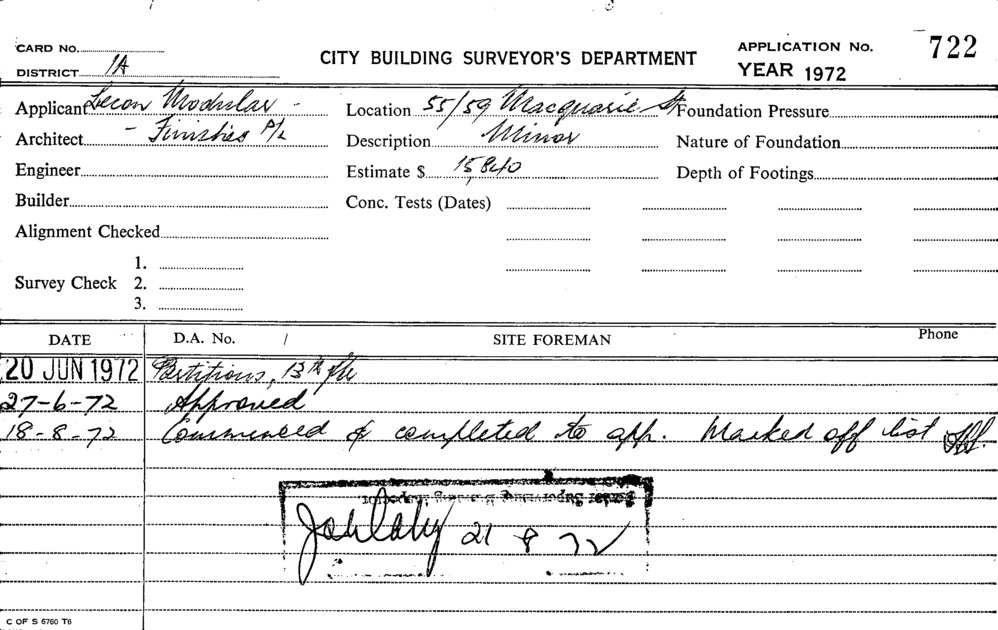 CARD No.
CITY BUILDING SURVEYOR'S DEPARTMENT
APPLICATION No. 722
DISTRICT 1A
YEAR 1972
Applicant Lecon Modular -
Location 55/59 Macquarie St
Foundation Pressure
Architect - Finishes P/L
Description Minor
Nature of Foundation
Engineer
Estimate $ 15,840
Depth of Footings
Builder
Conc. Tests (Dates)
Alignment Checked
Survey Check 1.
2.
3.
DATE D.A. No. / SITE FOREMAN Phone
20 JUN 1972 Partitions, 13th flr
27-6-72 Approved
18-8-72 Commenced & completed to app. Marked off list
21 8 72
C OF S 6760 T6